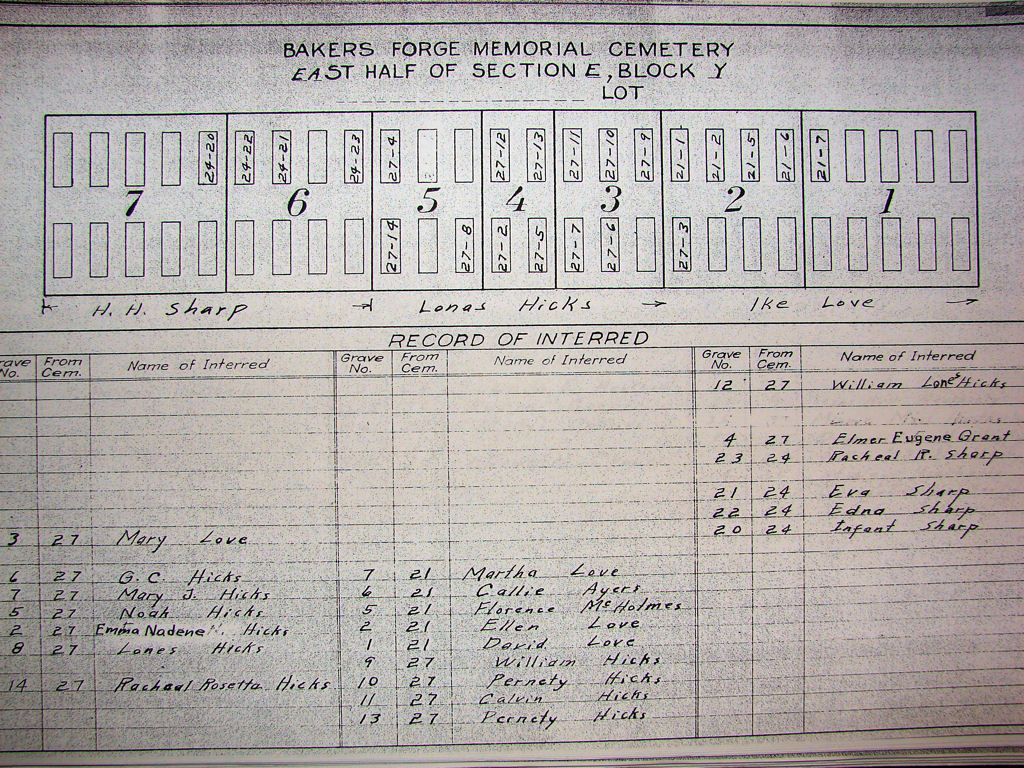 BAKERS FORGE MEMORIAL CEMETERY
EAST HALF OF SECTION E, BLOCK Y
LOT
24-20 24-22 24-21 24-23 27-4 27-12 27-13 27-11 27-10 27-9 21-1 21-2 21-5 21-6 21-7
7 6 5 4 3 2 1
27-14 27-8 27-2 27-5 27-7 27-6 27-3
H. H. Sharp Lonas Hicks Ike Love
RECORD OF INTERRED
Grave No. From Cem. Name of Interred Grave No. From Cem. Name of Interred Grave No. From Cem. Name of Interred
3 27 Mary Love
6 27 G. C. Hicks
7 27 Mary J. Hicks
5 27 Noah Hicks
2 27 Emma Nadene Hicks
8 27 Lones Hicks
14 27 Racheal Rosetta Hicks
7 21 Martha Love
6 21 Callie Ayers
5 21 Florence McHolmes
2 21 Ellen Love
1 21 David Love
9 27 William Hicks
10 27 Pernety Hicks
11 27 Calvin Hicks
13 27 Pernety Hicks
12 27 William Lones Hicks
4 27 Elmer Eugene Grant
23 24 Racheal R. Sharp
21 24 Eva Sharp
22 24 Edna Sharp
20 24 Infant Sharp